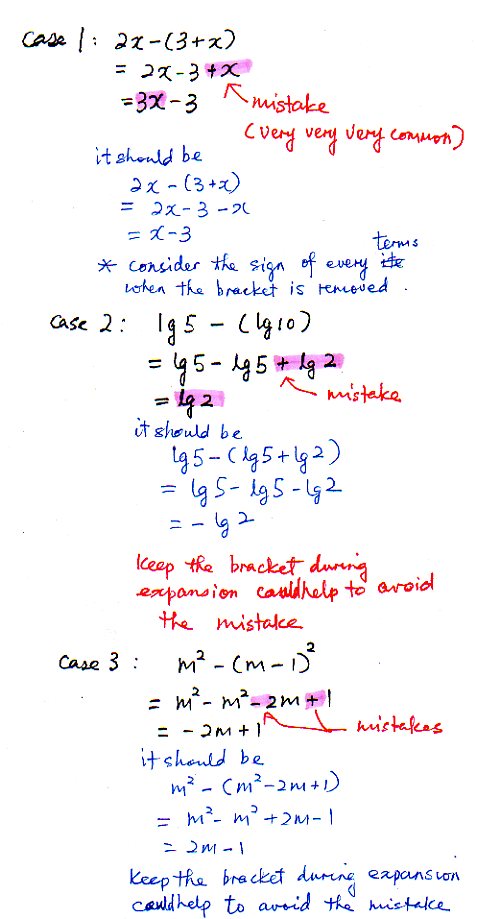 Case 1: 2x-(3+x)
= 2x-3+x
=3x-3
mistake
(very very very common)
it should be
2x-(3+x)
= 2x-3-x
= x-3
terms
* consider the sign of every ite
when the bracket is removed.
Case 2: lg5 - (lg10)
= lg5 - lg5 + lg2
= lg2
mistake
it should be
lg5-(lg5+lg2)
= lg5-lg5-lg2
= -lg2
Keep the bracket during
expansion could help to avoid
the mistake
Case 3: m²-(m-1)²
= m²-m²-2m+1
= -2m+1
mistakes
it should be
m²-(m²-2m+1)
= m²-m²+2m-1
= 2m-1
Keep the bracket during expansion
could help to avoid the mistake